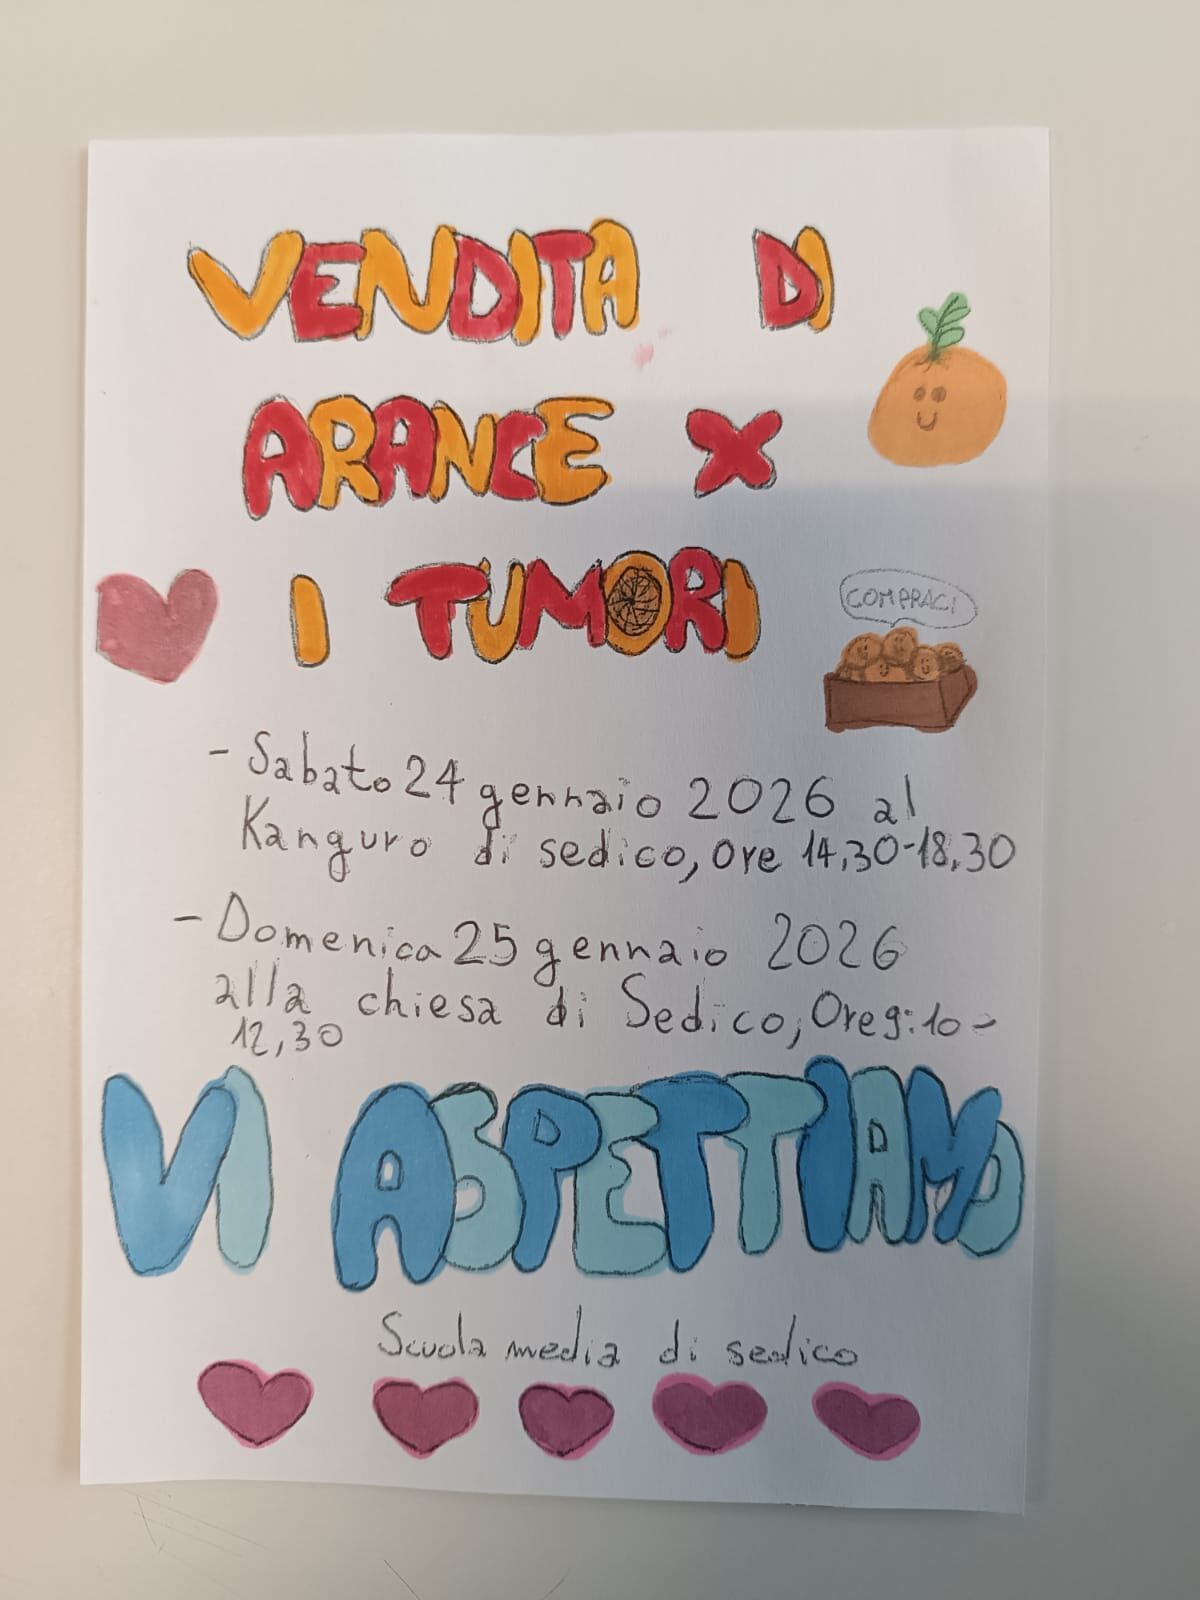 VENDITA DI
ARANCE X
I TUMORI
COMPRACI
- Sabato 24 gennaio 2026 al
Kanguro di sedico, ore 14,30-18,30
- Domenica 25 gennaio 2026
alla chiesa di Sedico, Ore 9:10-
12,30
VI ASPETTIAMO
Scuola media di sedico